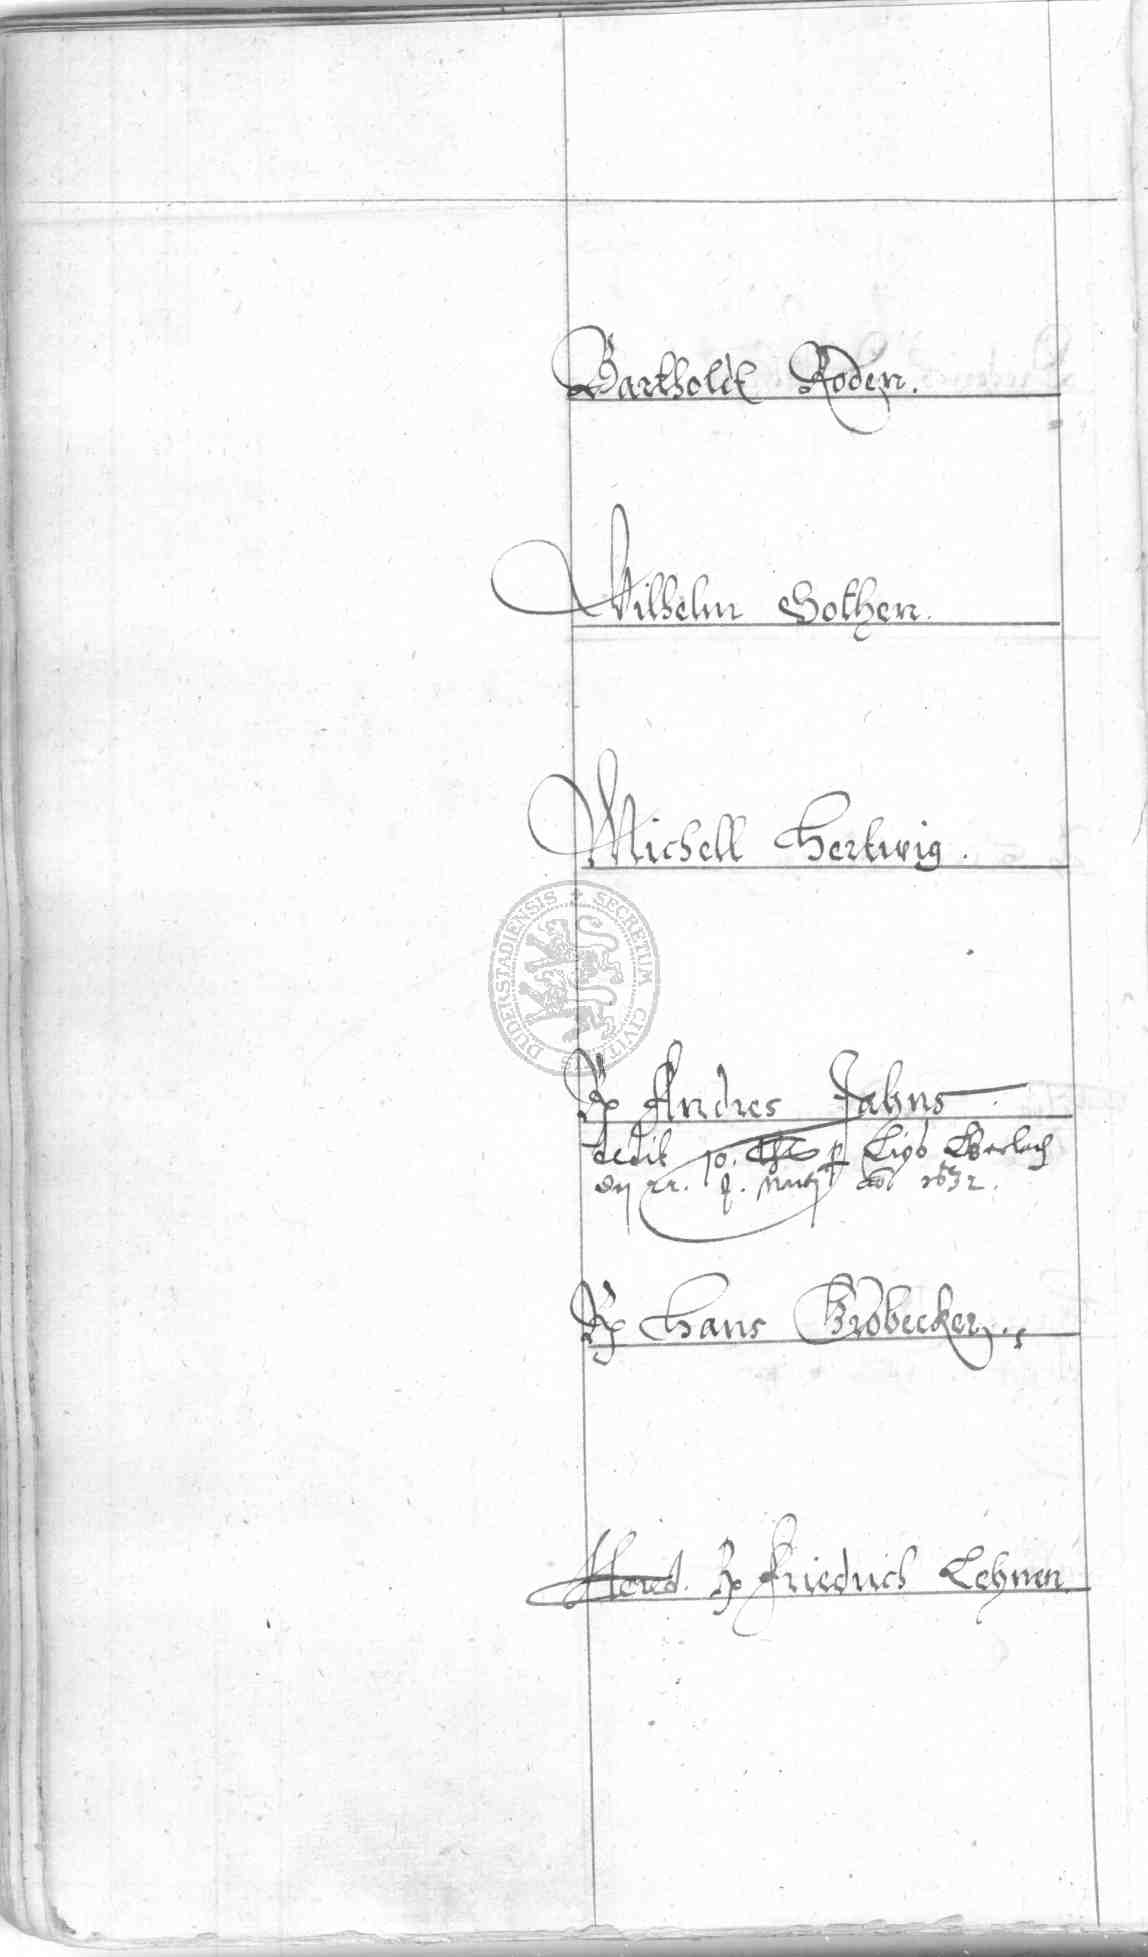 Bartholdt Roden.
Wilhelm Gothen.
Michell Hertwig.
DUDERSTADIENSIS SECRETUM CIVITIS
Andres Jahns
dedit 10. p Gerlach
22. Martij 1632.
Hans Brobecker.
Hered. Friedrich Lehnen